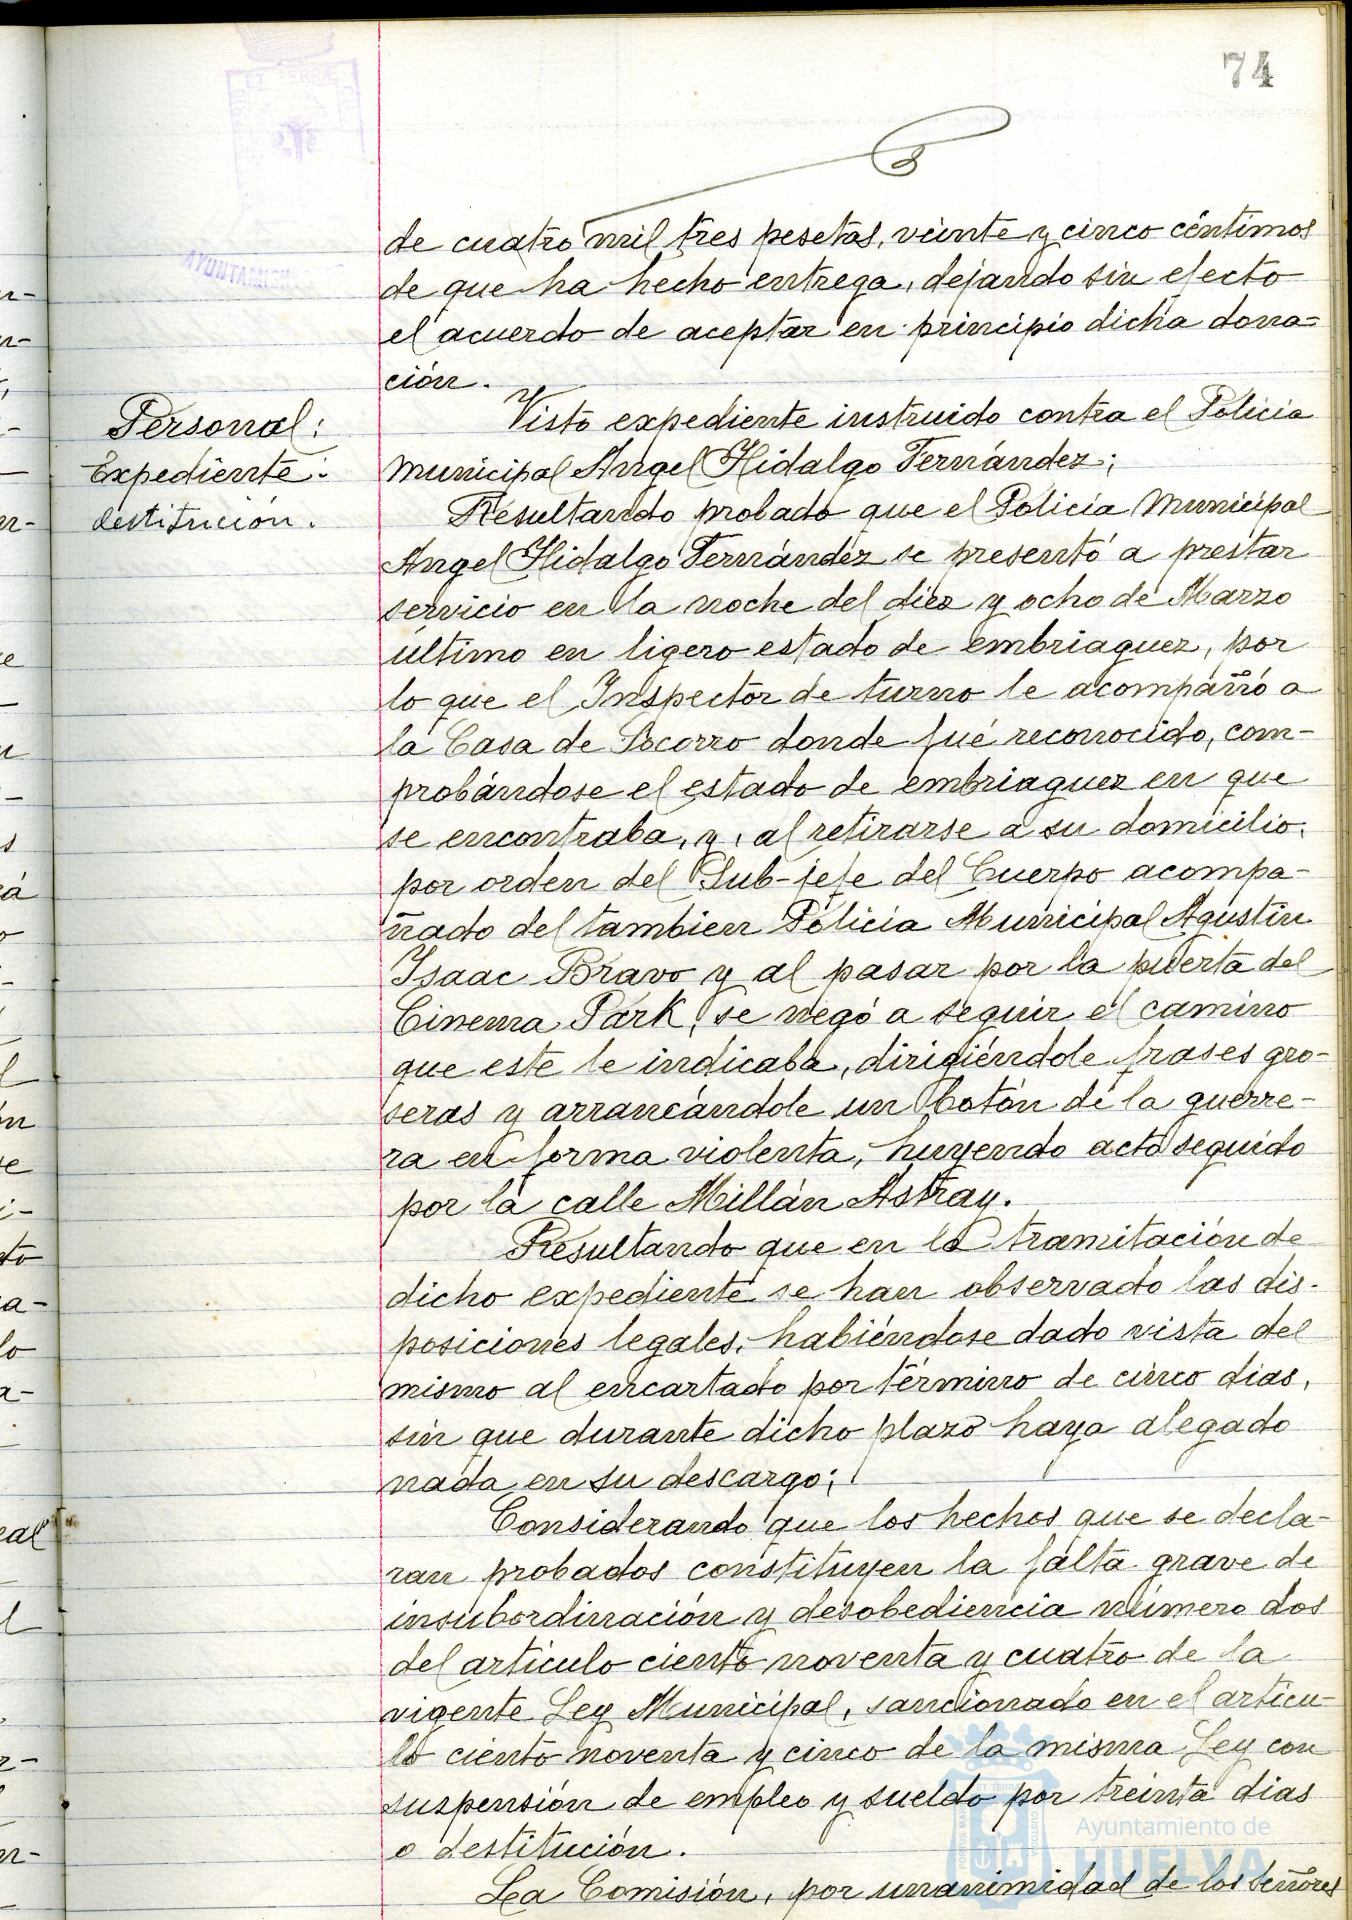 74
de cuatro mil tres pesetas, veinte y cinco céntimos
de que ha hecho entrega, dejando sin efecto
el acuerdo de aceptar en principio dicha dona=
ción.
Personal:
Expediente:
destitución.
Visto expediente instruido contra el Policia
Municipal Angel Hidalgo Fernández;
Resultando probado que el Policía Municipal
Angel Hidalgo Fernández se presentó a prestar
servicio en la noche del diez y ocho de Marzo
último en ligero estado de embriaguez, por
lo que el Inspector de turno le acompañó a
la Casa de Socorro donde fué reconocido, com-
probándose el estado de embriaguez en que
se encontraba, y, al retirarse a su domicilio,
por orden del Sub-jefe del Cuerpo acompa-
ñado del tambien Policía Municipal Agustin
Isaac Bravo y al pasar por la puerta del
Cinema Park, se negó a seguir el camino
que este le indicaba, dirigiéndole frases gro-
seras y arrancándole un botón de la guerre-
ra en forma violenta, huyendo acto seguido
por la calle Millán Astray.
Resultando que en la tramitación de
dicho expediente se han observado las dis-
posiciones legales, habiéndose dado vista del
mismo al encartado por término de cinco dias,
sin que durante dicho plazo haya alegado
nada en su descargo;
Considerando que los hechos que se decla-
ran probados constituyen la falta grave de
insubordinación y desobediencia número dos
del artículo ciento noventa y cuatro de la
vigente Ley Municipal, sancionado en el articu-
lo ciento noventa y cinco de la misma Ley con
suspensión de empleo y sueldo por treinta dias
o destitución.
La Comisión, por unanimidad de los señores
AYUNTAMIEN
ET TERRÆ
Ayuntamiento de
HUELVA